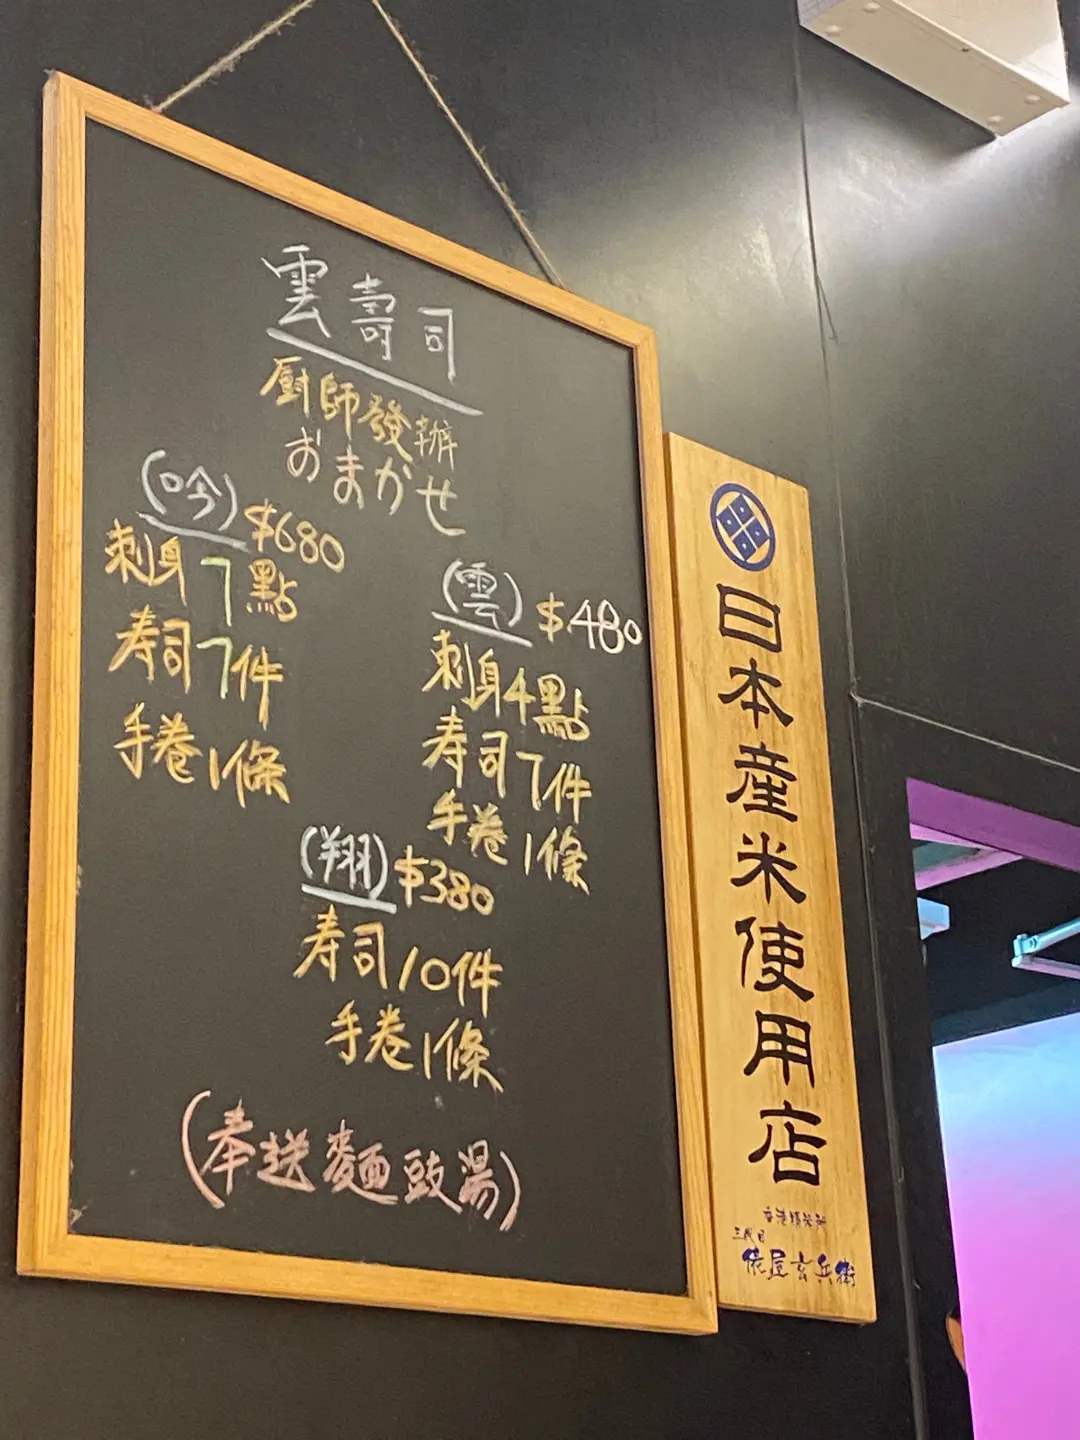 雲壽司
厨師發辦
おまかせ
(吟) $680
刺身7點
寿司7件
手巻1條
(雲) $480
刺身4點
寿司7件
手巻1條
(翔) $380
寿司10件
手巻1條
(奉送麵豉湯)
日本産米使用店
香港精米所
三代目
俵屋玄兵衛